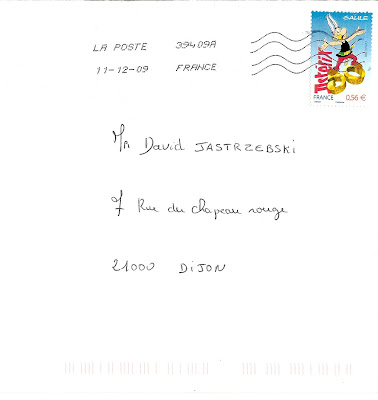 GAULE
Astérix
FRANCE 0,56 €
LA POSTE 39409A
11-12-09 FRANCE
Mr David JASTRZEBSKI
7 Rue du chapeau rouge
21000 DIJON